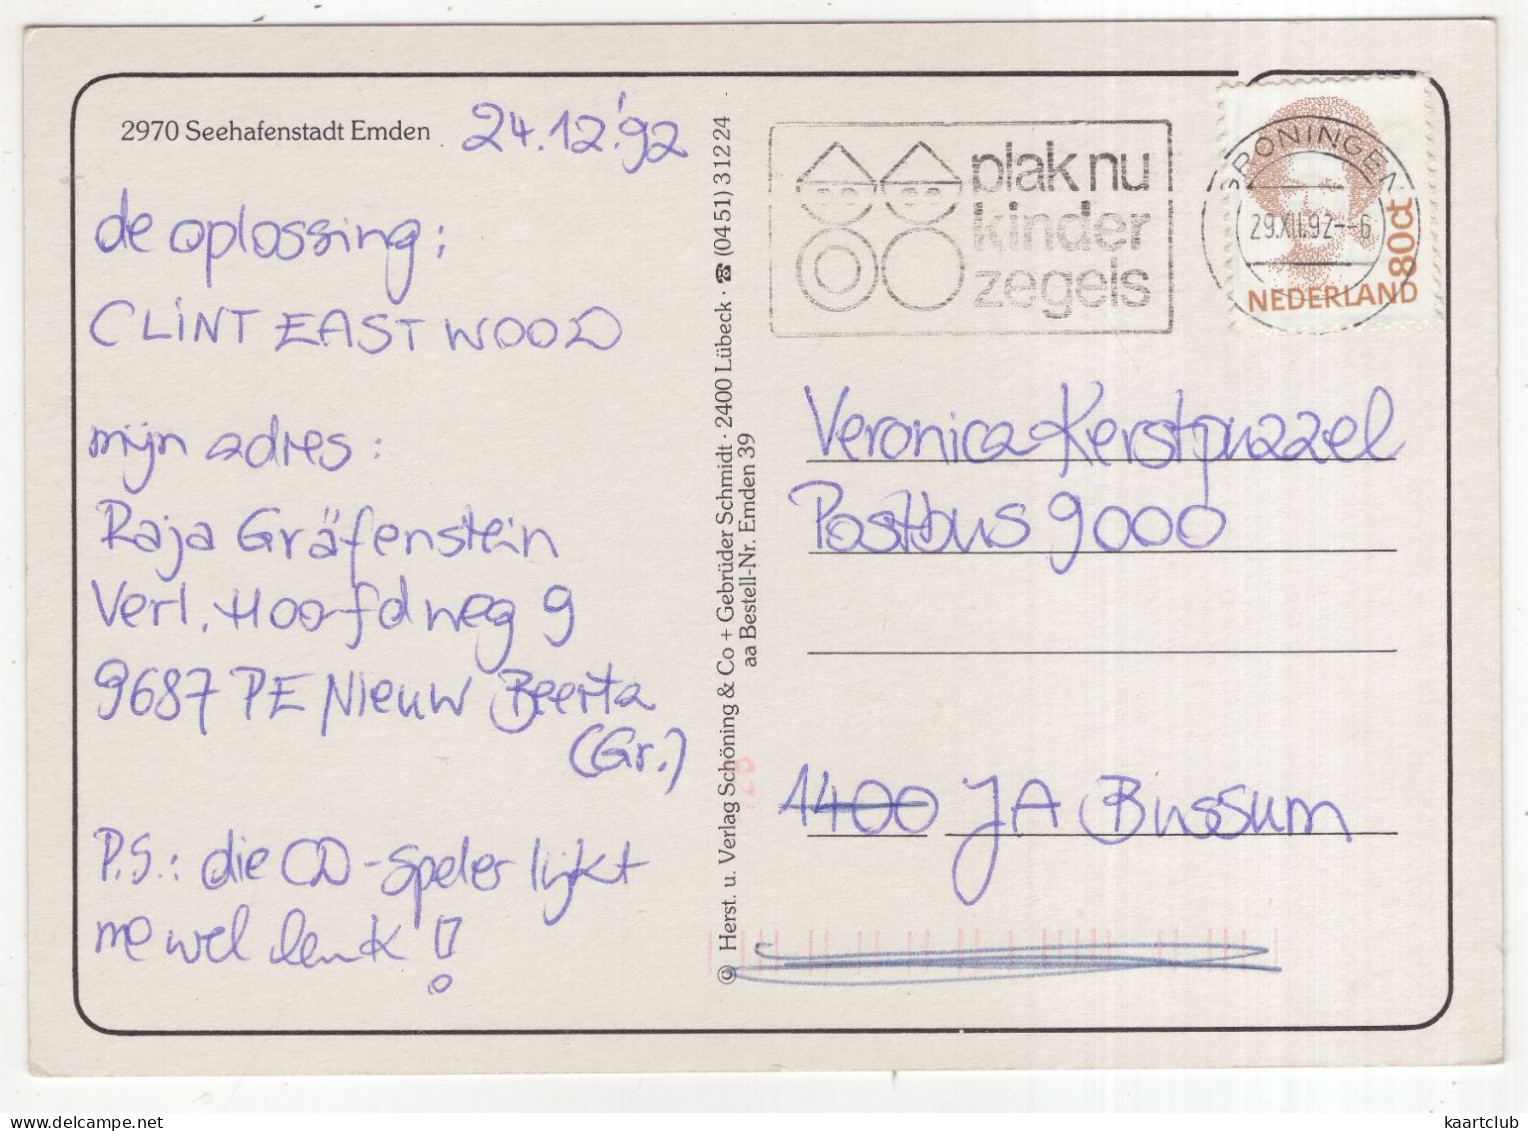 2970 Seehafenstadt Emden
24.12.'92
de oplossing;
CLINT EASTWOOD
mijn adres:
Raja Gräfenstein
Verl. Hoofdweg 9
9687 PE Nieuw Beerta
(Gr.)
P.S.: die CD-speler lijkt
me wel leuk!
© Herst. u. Verlag Schöning & Co + Gebrüder Schmidt · 2400 Lübeck · ☎ (0451) 31 22 24
aa Bestell-Nr. Emden 39
plak nu
kinder
zegels
GRONINGEN
29.XII.92--6
80ct
NEDERLAND
Veronica Kerstpuzzel
Postbus 9000
1400 JA Bussum
kaartclub